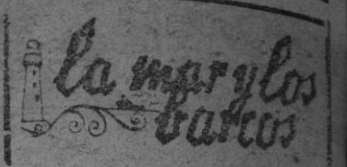 la mar y los
barcos